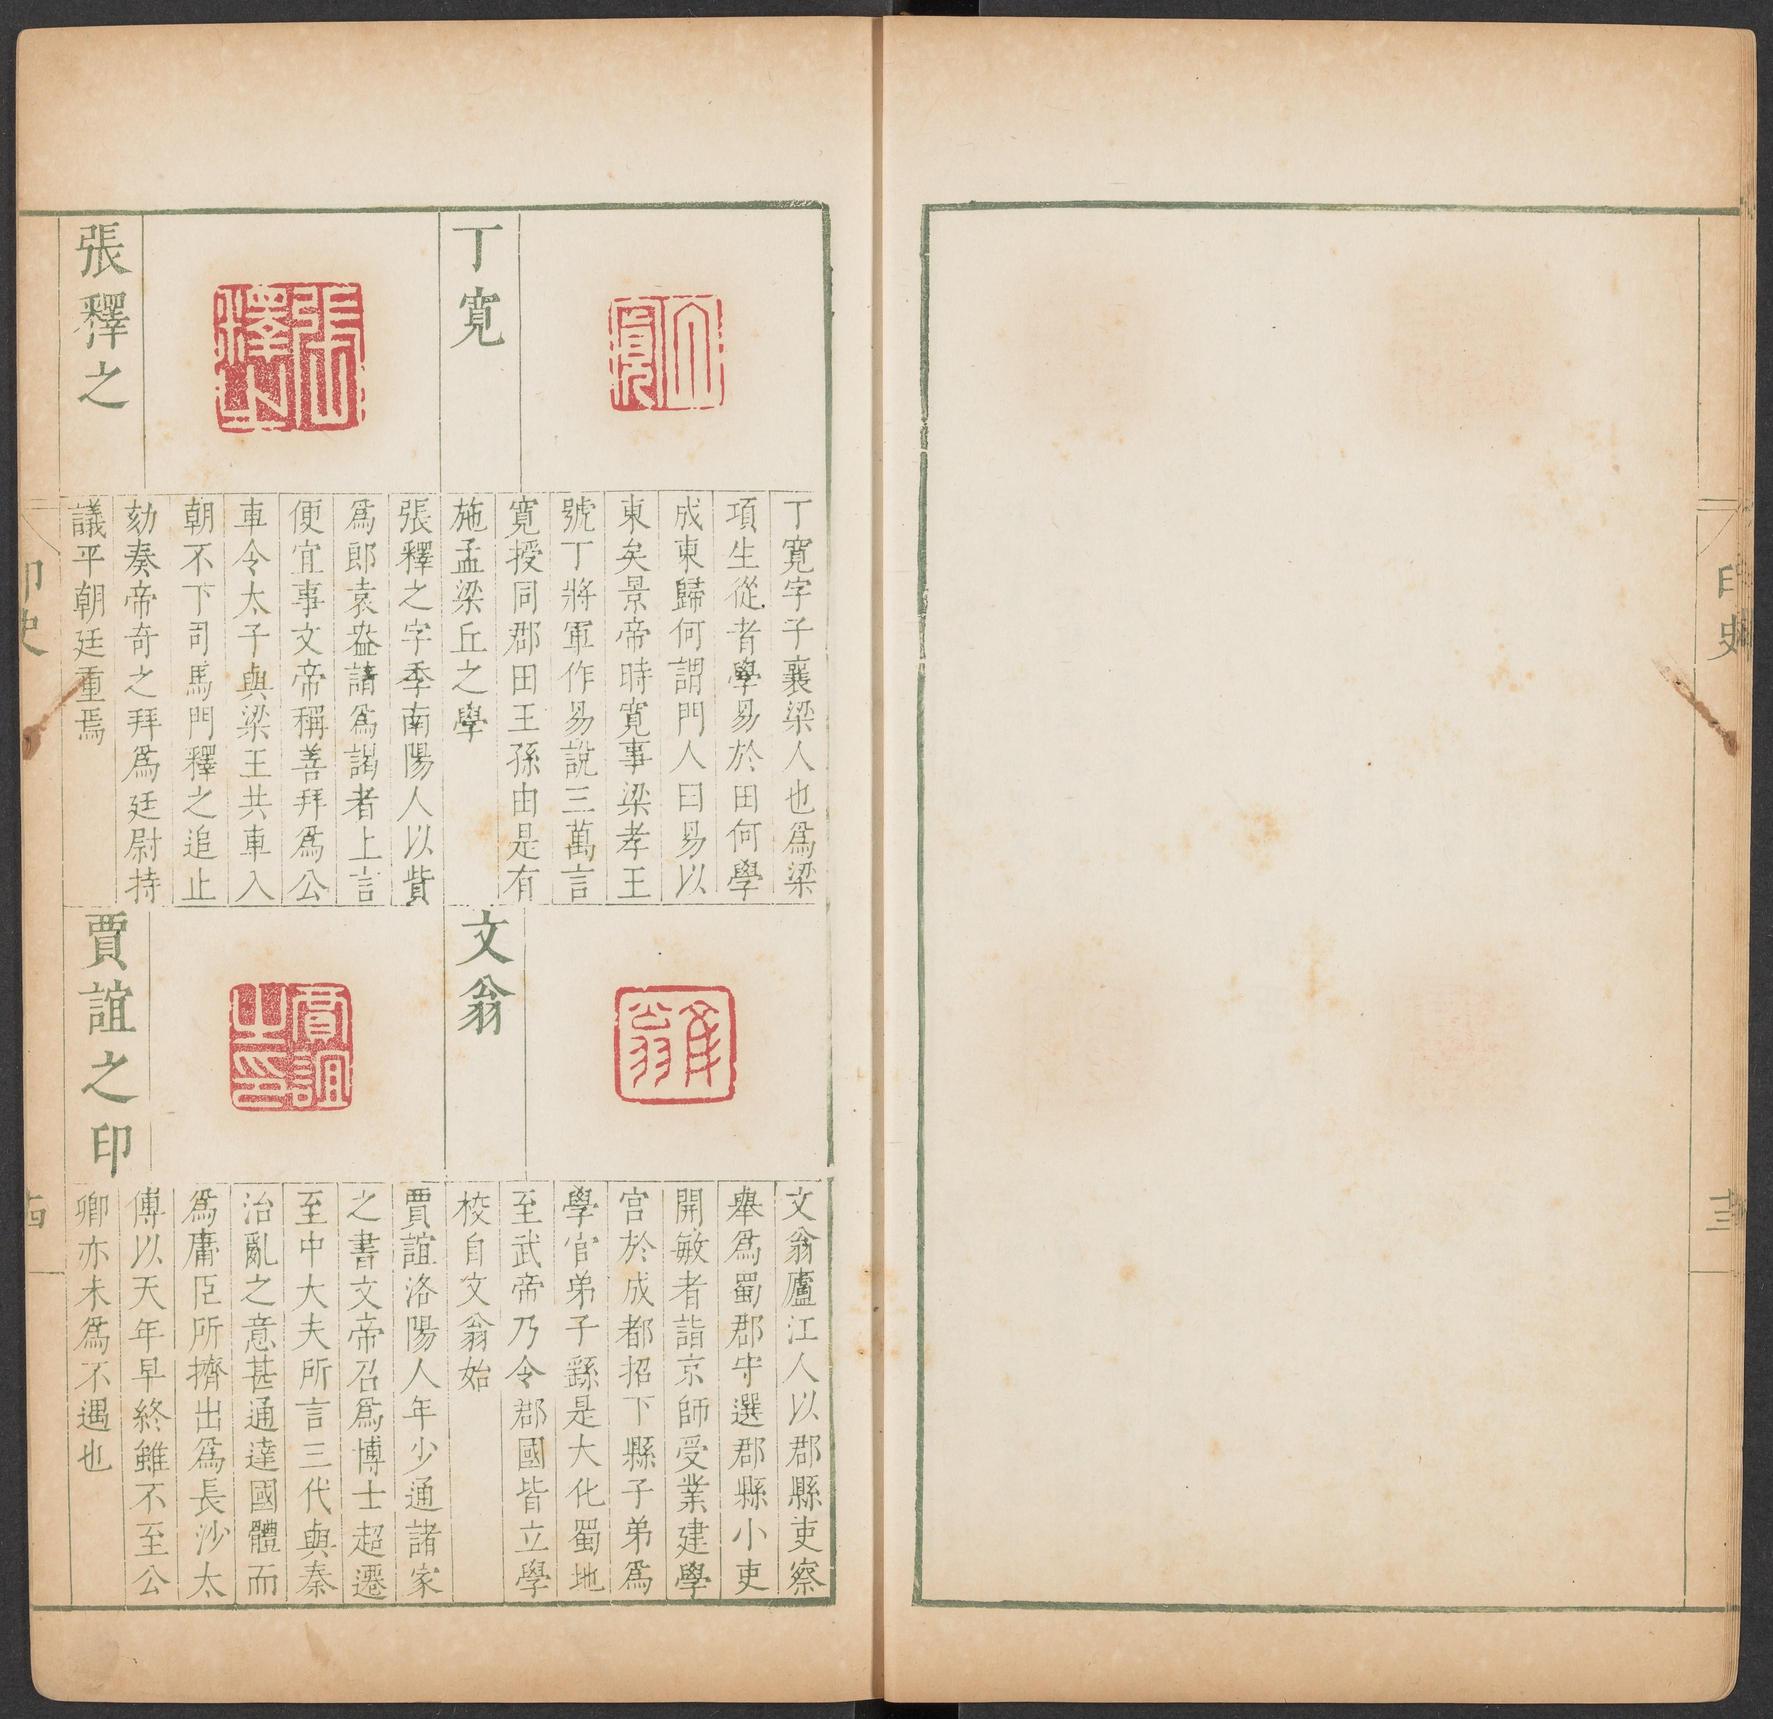 印史
丁寬
丁寬字子襄梁人也爲梁
項生從者學易於田何學
成東歸何謂門人曰易以
東矣景帝時寬事梁孝王
號丁將軍作易說三萬言
寬授同郡田王孫由是有
施孟梁丘之學
張釋之
張釋之字季南陽人以貲
爲郎袁盎請爲謁者上言
便宜事文帝稱善拜爲公
車令太子與梁王共車入
朝不下司馬門釋之追止
劾奏帝奇之拜爲廷尉持
議平朝廷重焉
文翁
文翁廬江人以郡縣吏察
舉爲蜀郡守選郡縣小吏
開敏者詣京師受業建學
宫於成都招下縣子弟爲
學官弟子繇是大化蜀地
至武帝乃令郡國皆立學
校自文翁始
賈誼之印
賈誼洛陽人年少通諸家
之書文帝召爲博士超遷
至中大夫所言三代與秦
治亂之意甚通達國體而
爲庸臣所擠出爲長沙太
傅以天年早終雖不至公
卿亦未爲不遇也
印史